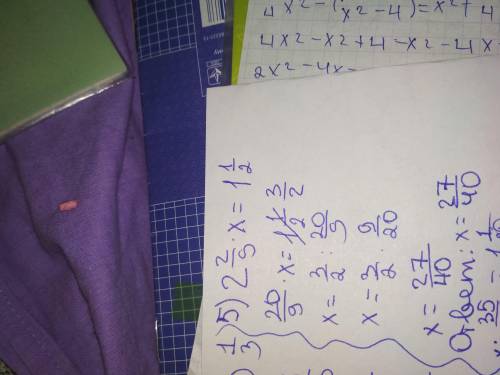 4x² - (x² - 4) = x² + 4
4x² - x² + 4 - x² - 4x
2x² - 4x -
1/3) 5) 2 2/9 · x = 1 1/2
20/9 · x = 3/2
x = 3/2 : 20/9
x = 3/2 · 9/20
x = 27/40
Ответ: x = 27/40
35